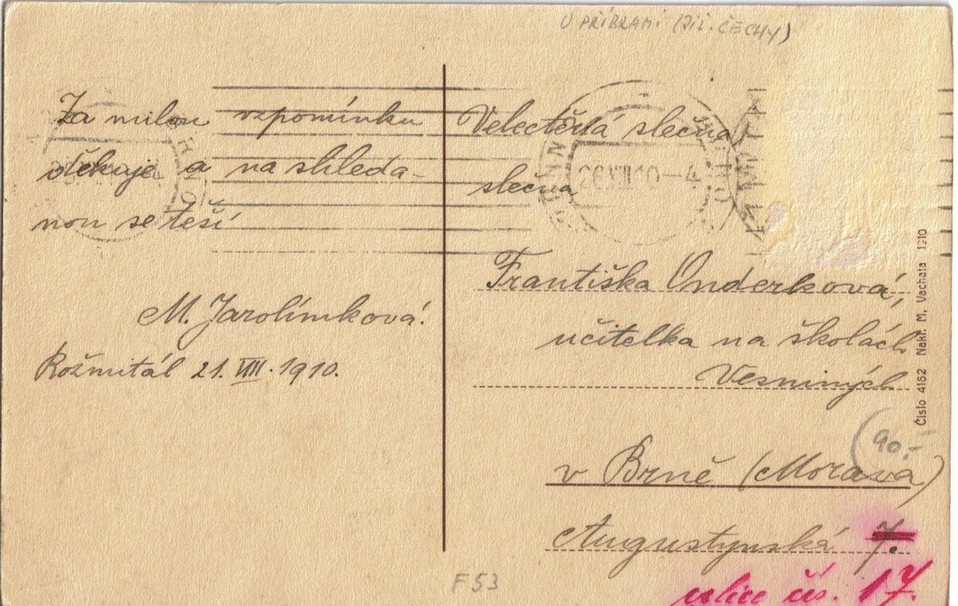 U PŘÍBRAMI (JIŽ. ČECHY)
Za milou vzpomínku
děkuje a na shleda-
nou se těší
M. Jarolímková.
Rožmitál 21. VIII. 1910.
Velectěná slečna
slečna
26 VIII 10-4
Františka Onderková,
učitelka na školách
Vesniných
v Brně (Morava)
Augustynská 7.
ulice čís. 17.
Číslo 4182 Nakl. M. Vachata 1910
90.-
F53